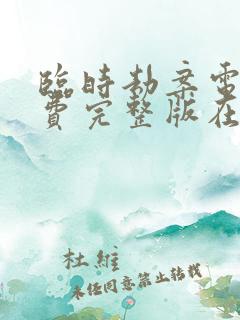 臨時劫案電
費完整版在
杜維
未经同意禁止转载